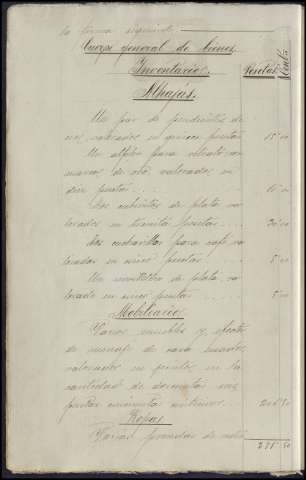 la forma siguiente
Cuerpo general de bienes
Pesetas Cents
Inventario.
Alhajas.
Un par de pendientes de
oro valorados en quince pesetas 15'00
Un alfiler para retrato
marco de oro, valorados en
diez pesetas 10'00
Dos cubiertos de plata va
lorados en treinta pesetas 30'00
Dos cucharillas para café va
loradas en cinco pesetas 5'00
Un mondadientes de plata va
lorado en cinco pesetas 5'00
Mobiliario
Varios muebles y efectos
de menaje de casa usados,
valorados en junto en la
cantidad de doscientas seis
pesetas cincuenta céntimos 206'50
Ropas
Varias prendas de
271'50